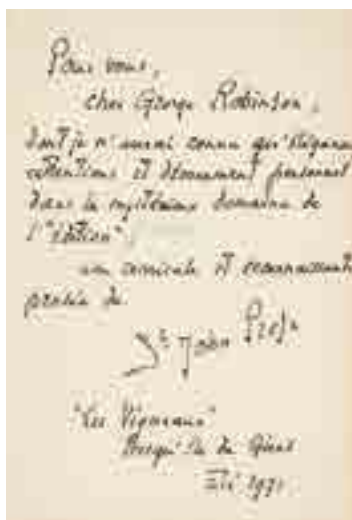 Pour vous,
cher George Robinson,
dont je n'aurai connu qu'élégance
attentions et dévouement personnel
dans le mystérieux domaine de
l'"édition",
une amicale et reconnaissante
pensée de
St-John Perse
"Les Vigneaux"
Presqu'île de Giens
Été 1971